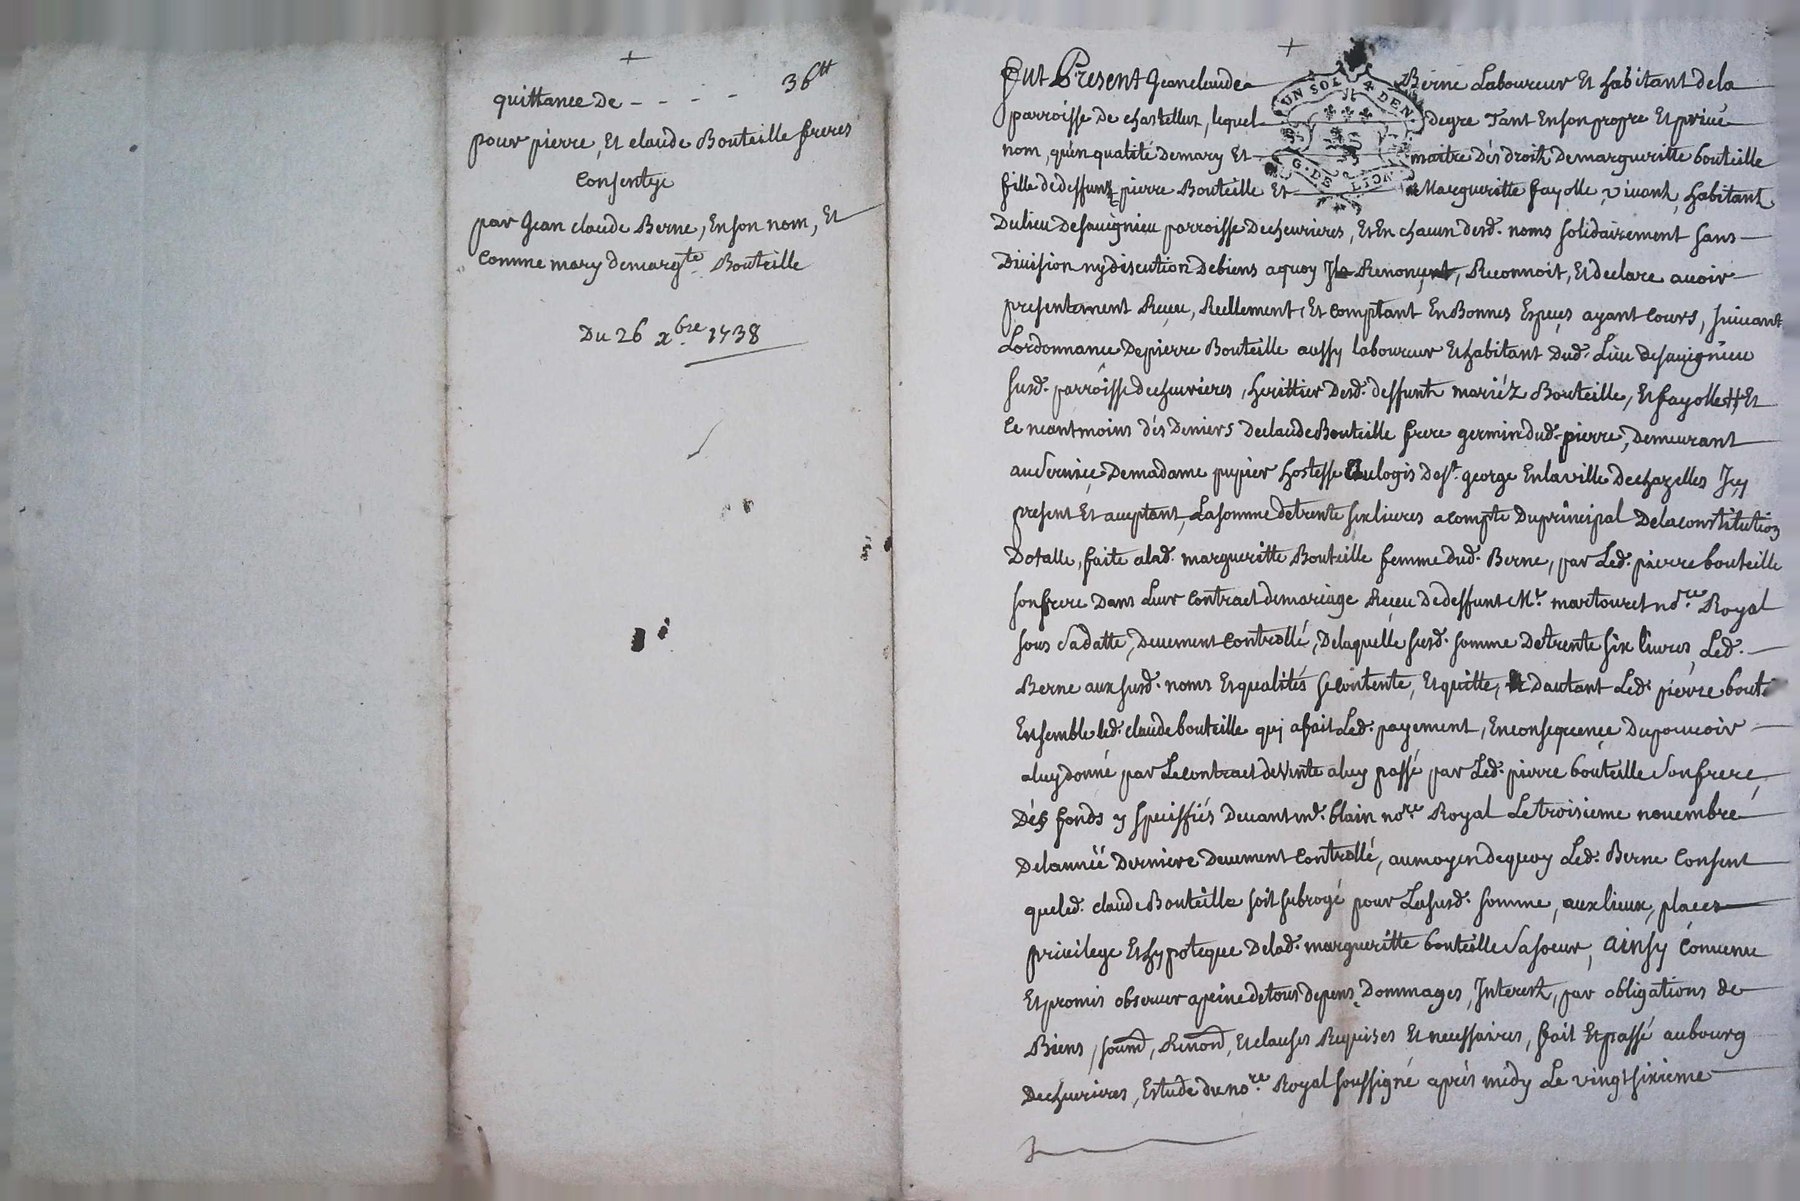 +
quittance de - - - - 36tt
pour pierre, Et claude Bouteille freres
Consentye
par Jean claude Berne, Enson nom, Et
Comme mary demargte. Bouteille
Du 26 xbre. 1738
+
Fut Present Jean claude Berne Laboureur Et habitant dela
parroisse De chastellus, lequel degre Tant Enson propre Et privé
nom, qu'en qualité Demary Et maitre dés droitz Demargueritte bouteille
fille dedeffuntz pierre Bouteille Et Margueritte fayolle, vivant, habitant
Dulieu Desauignieu parroisse Decheurieres, Et En chacun desd. noms solidairement sans
Division ny discution Debiens aquoy Il Renonce, Reconnoit, Et declare avoir
presentement Receu, Reellement, Et Comptant En Bonnes Espeçes ayant Cours, suiuant
Lordonnance Depierre Bouteille aussy laboureur Et habitant Dud. Lieu Desauignieu
susd. parroisse decheurieres, herittier Desd. deffuntz mariéz Bouteille, Et fayolle # Et
Ce neantmoins dés Deniers Declaude Bouteille frere germin dud. pierre, Demeurant
auServiçe Demadame pupier hostesse Aulogis De st. george Enlaville Dechazelles Icy
present Et aceptant, Lasomme detrente six livres acompte Duprincipal Delaconstitution
Dotalle, faite alad. margueritte Bouteille femme dud. Berne, par Led. pierre bouteille
sonfrere Dans Leur Contract demariage Receu Dedeffunt Mr. martouret nore. Royal
sous Sadatte, Deuement Controllé, Delaquelle susd. somme Detrente six livres, Led.
Berne aux susd. noms Et qualités secontente, Et quitte, Dautant Led. pierre bout
Ensemble led. claude bouteille qui afait Led. payement, Enconsequençe Dupouuoir
aluy donné par Lecontract devente aluy passé par Led. pierre bouteille Sonfrere,
Dés fonds y speciffiés Deuant md. blain nore. Royal Le troisieme novembre
Delannéé Derniere Deuement Controllé, aumoyen dequoy Led. Berne Consent
queled. claude Bouteille soit subrogé pour Lasusd. somme, aux lieux, places
privilege Et hypoteque Delad. margueritte bouteille Sasoeur, ainsy Convenu
Et promis observer apeine detous depens, Dommages, Interestz, par obligations de
Biens, soumd, Renond, Et clauses Requises Et necessaires, fait Et passé aubourg
Decheurieres, Estude dunore. Royal soussigné aprés midy Le vingt sixieme
UN SOL 4 DEN.
G. DE LION